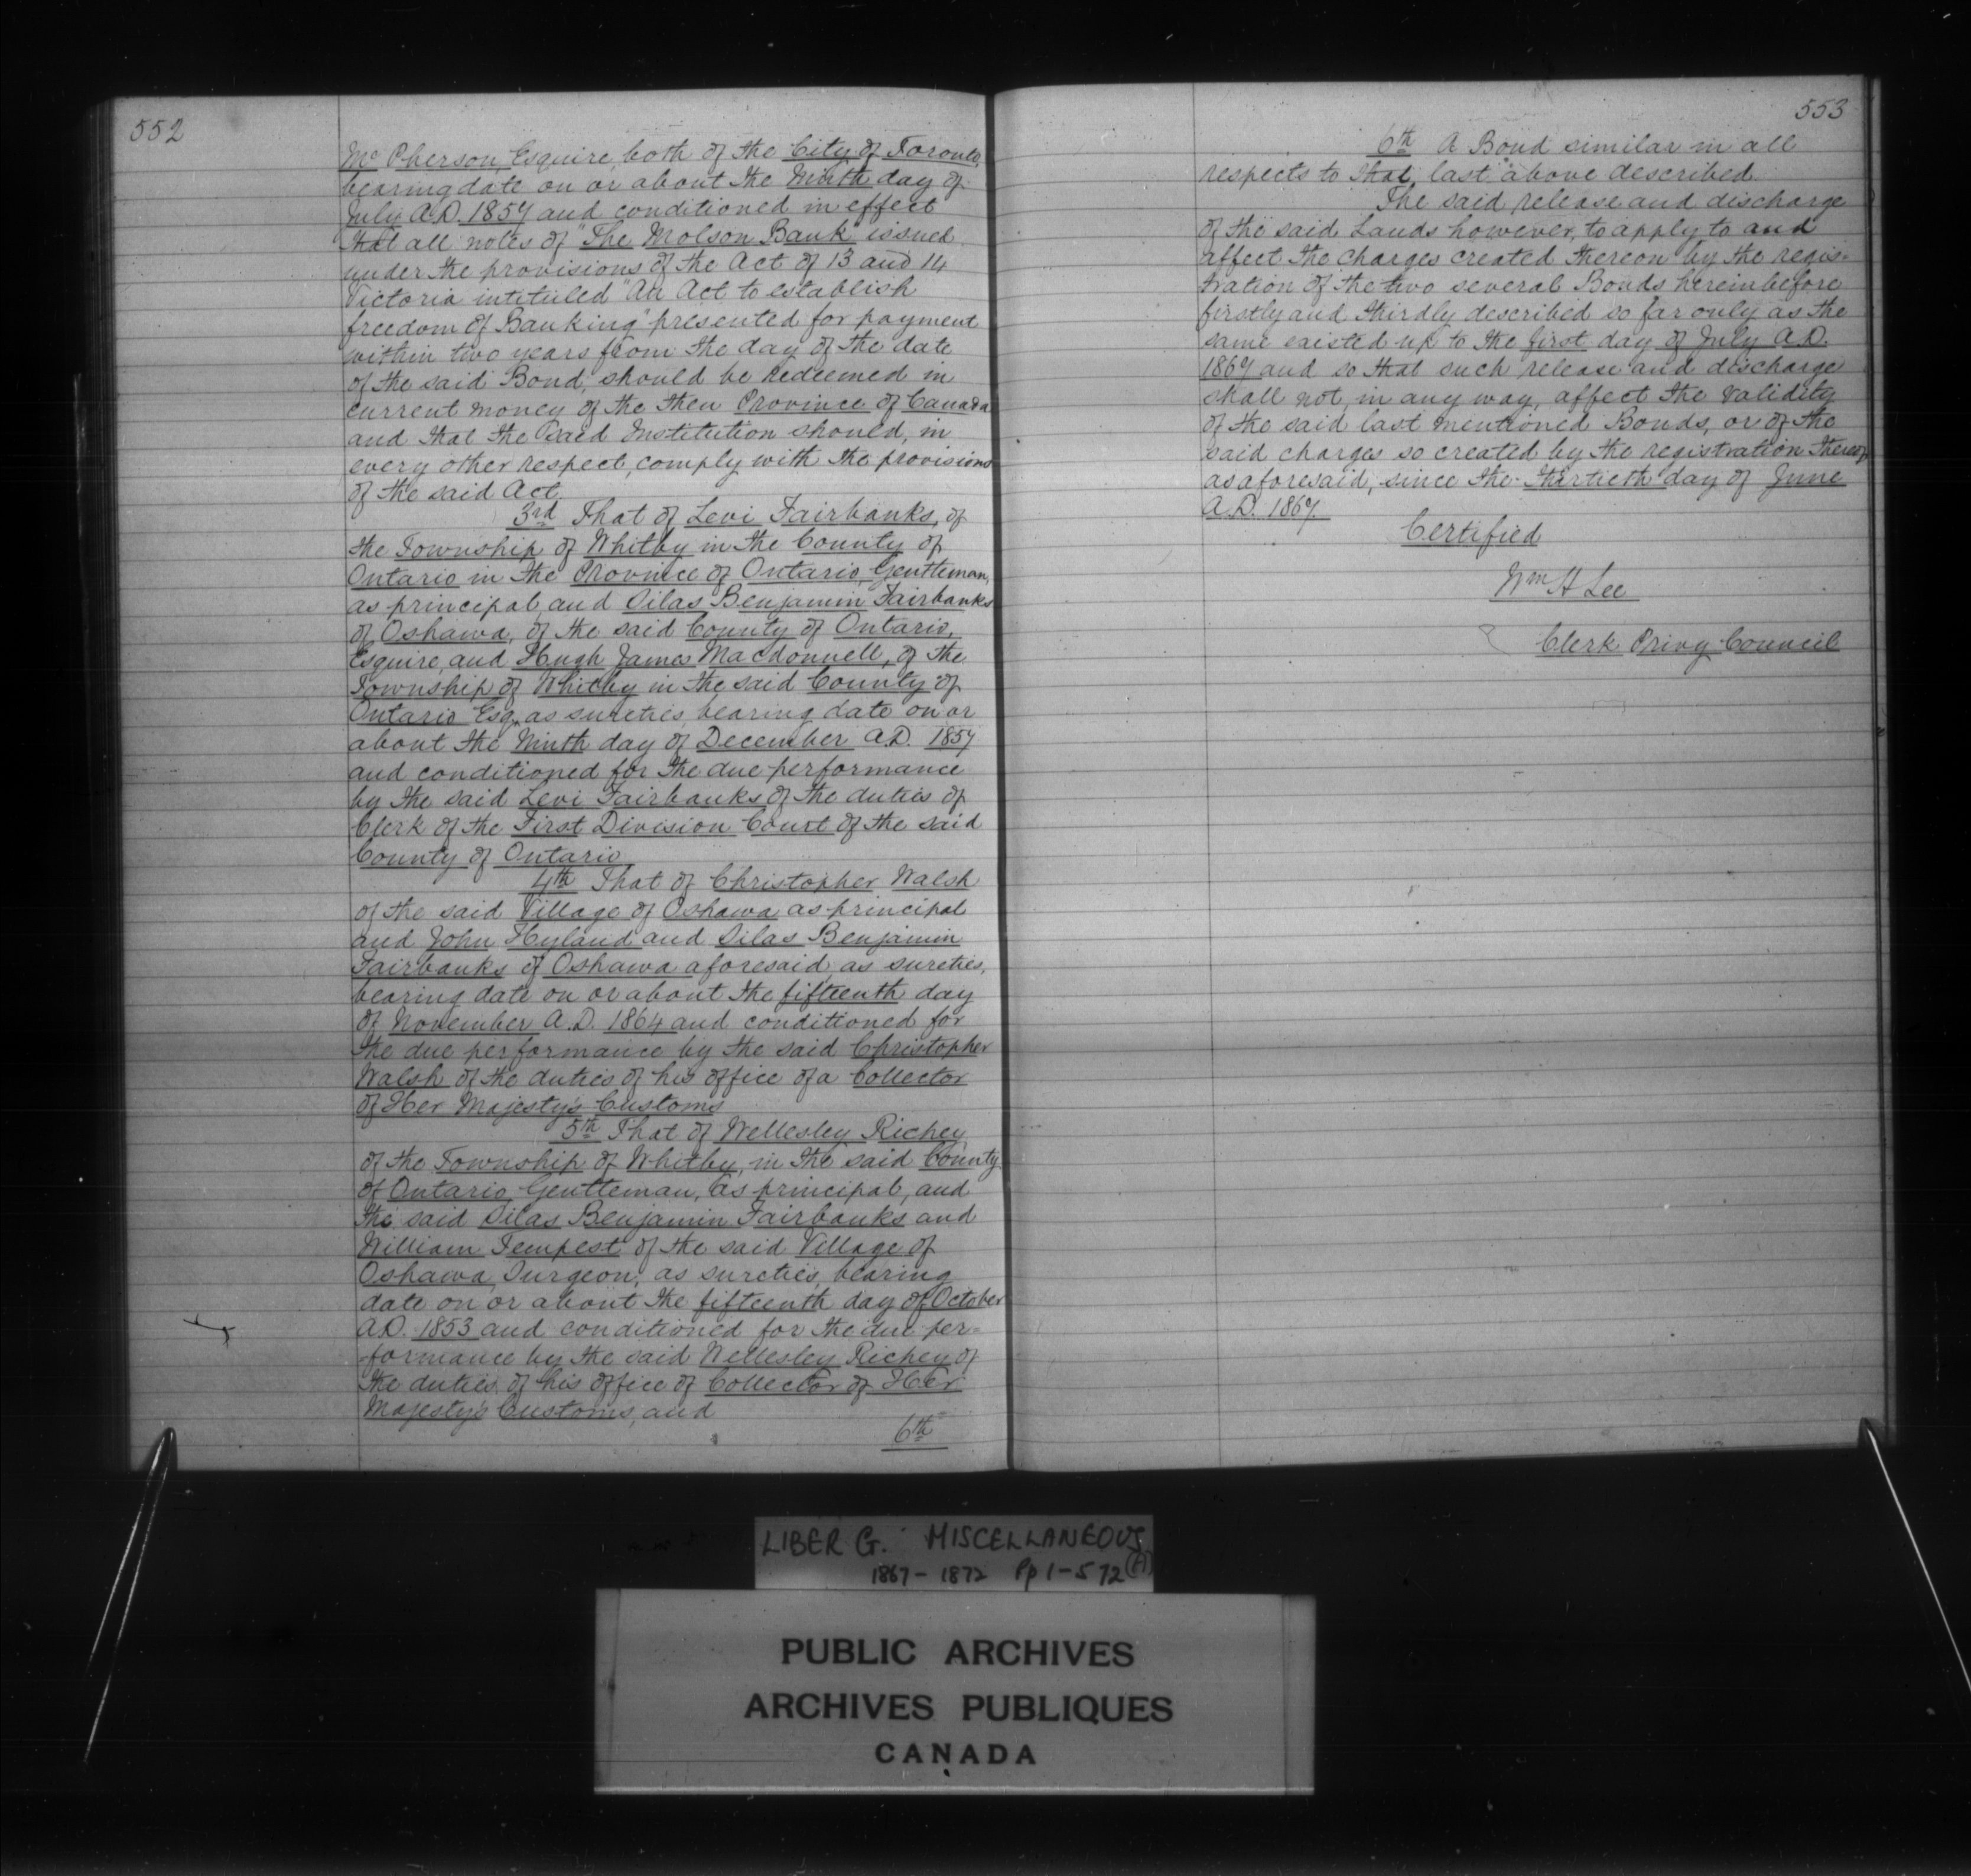 552
Mc Pherson, Esquire, both of the City of Toronto,
bearing date on or about the Ninth day of
July A.D. 1857 and conditioned in effect
that all notes of "The Molson Bank" issued
under the provisions of the Act of 13 and 14
Victoria intituled "An Act to establish
freedom of Banking" presented for payment
within two years from the day of the date
of the said Bond, should be redeemed in
current money of the then Province of Canada
and that the said Institution should, in
every other respect, comply with the provisions
of the said Act.
3rd That of Levi Fairbanks, of
the Township of Whitby in the County of
Ontario in the Province of Ontario, Gentleman,
as principal, and Silas Benjamin Fairbanks
of Oshawa, of the said County of Ontario,
Esquire, and Hugh James Macdonnell, of the
Township of Whitby in the said County of
Ontario Esq. as sureties, bearing date on or
about the Ninth day of December A.D. 1857
and conditioned for the due performance
by the said Levi Fairbanks of the duties of
Clerk of the First Division Court of the said
County of Ontario
4th That of Christopher Walsh
of the said Village of Oshawa as principal
and John Hyland and Silas Benjamin
Fairbanks of Oshawa aforesaid, as sureties,
bearing date on or about the fifteenth day
of November A.D. 1864 and conditioned for
the due performance by the said Christopher
Walsh of the duties of his office of a Collector
of Her Majesty's Customs
5th That of Wellesley Richey,
of the Township of Whitby, in the said County
of Ontario, Gentleman, as principal, and
the said Silas Benjamin Fairbanks and
William Tempest of the said Village of
Oshawa, Surgeon, as sureties, bearing
date on or about the fifteenth day of October
A.D. 1853 and conditioned for the due per-
formance by the said Wellesley Richey of
the duties of his office of Collector of Her
Majesty's Customs, and
6th
553
6th A Bond similar in all
respects to that last above described.
The said release and discharge
of the said Lands however, to apply to and
affect the charges created thereon by the regis-
tration of the two several Bonds hereinbefore
firstly and thirdly described so far only as the
same existed up to the first day of July A.D.
1867 and so that such release and discharge
shall not, in any way, affect the validity
of the said last mentioned Bonds, or of the
said charges so created by the registration thereof
as aforesaid, since the thirtieth day of June
A.D. 1867.
Certified
Wm H Lee
Clerk Privy Council
LIBER G. MISCELLANEOUS
1867 - 1872 Pp 1-572 (A)
PUBLIC ARCHIVES
ARCHIVES PUBLIQUES
CANADA